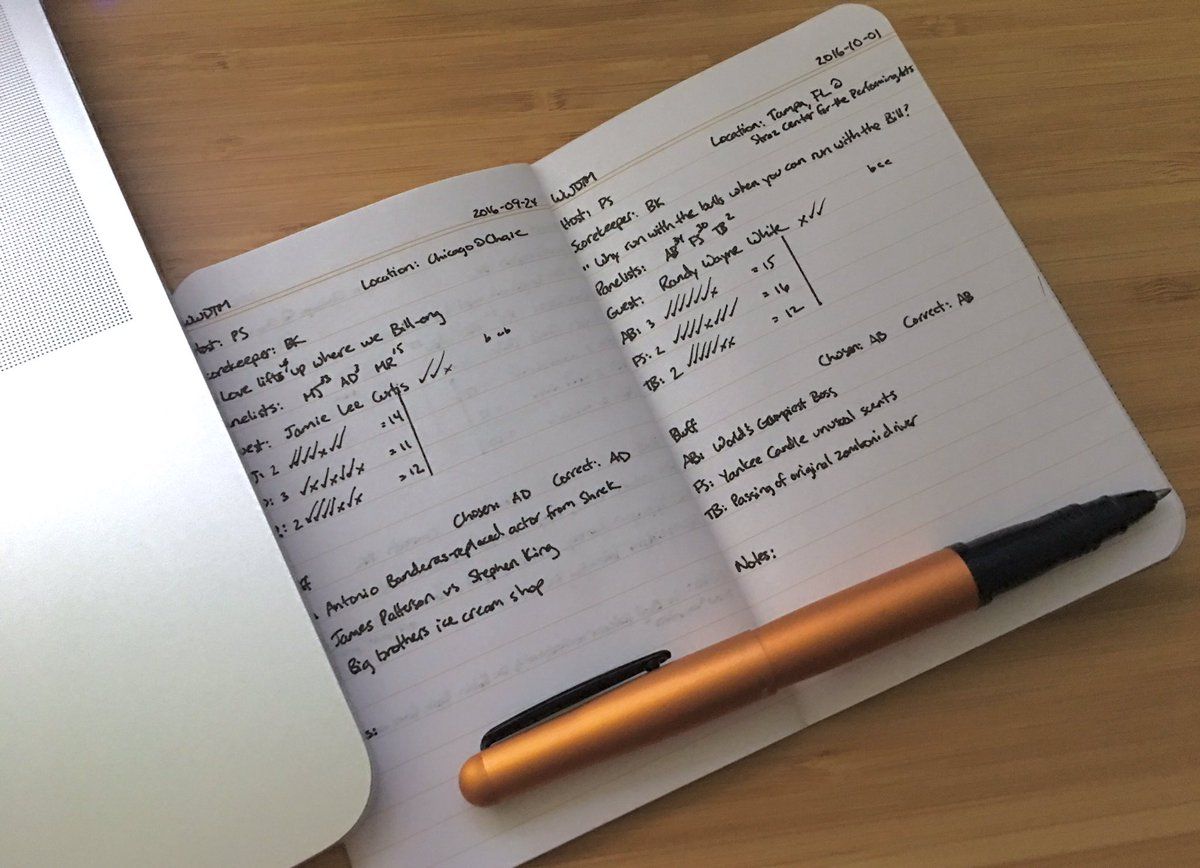 2016-09-24
WWDTM
Location: Chicago @ Chase
ost: PS
corekeeper: BK
Love lifts us up where we Bill-ong
nelists: MJ AD MR¹⁵
est: Jamie Lee Curtis ✓✓x
J: 2 ✓✓✓x✓✓ = 14
: 3 ✓x✓x✓✓x = 11
: 2 ✓✓✓✓x✓x = 12
Chosen: AD Correct: AD
ff
Antonio Banderas-replaced actor from Shrek
James Patterson vs Stephen King
Big brothers ice cream shop
s:
2016-10-01
WWDTM
Location: Tampa, FL @
Straz Center for the Performing Arts
Host: PS
Scorekeeper: BK
"Why run with the bulls when you can run with the Bill?
Panelists: AB FS³⁰ TB²
Guest: Randy Wayne White x✓✓
AB: 3 ✓✓✓✓✓✓x = 15
FS: 2 ✓✓✓✓x✓✓✓ = 16
TB: 2 ✓✓✓✓✓xx = 12
Chosen: AD Correct: AB
Bluff
AB: World's Grumpiest Boss
FS: Yankee Candle unusual scents
TB: Passing of original Zamboni driver
Notes: